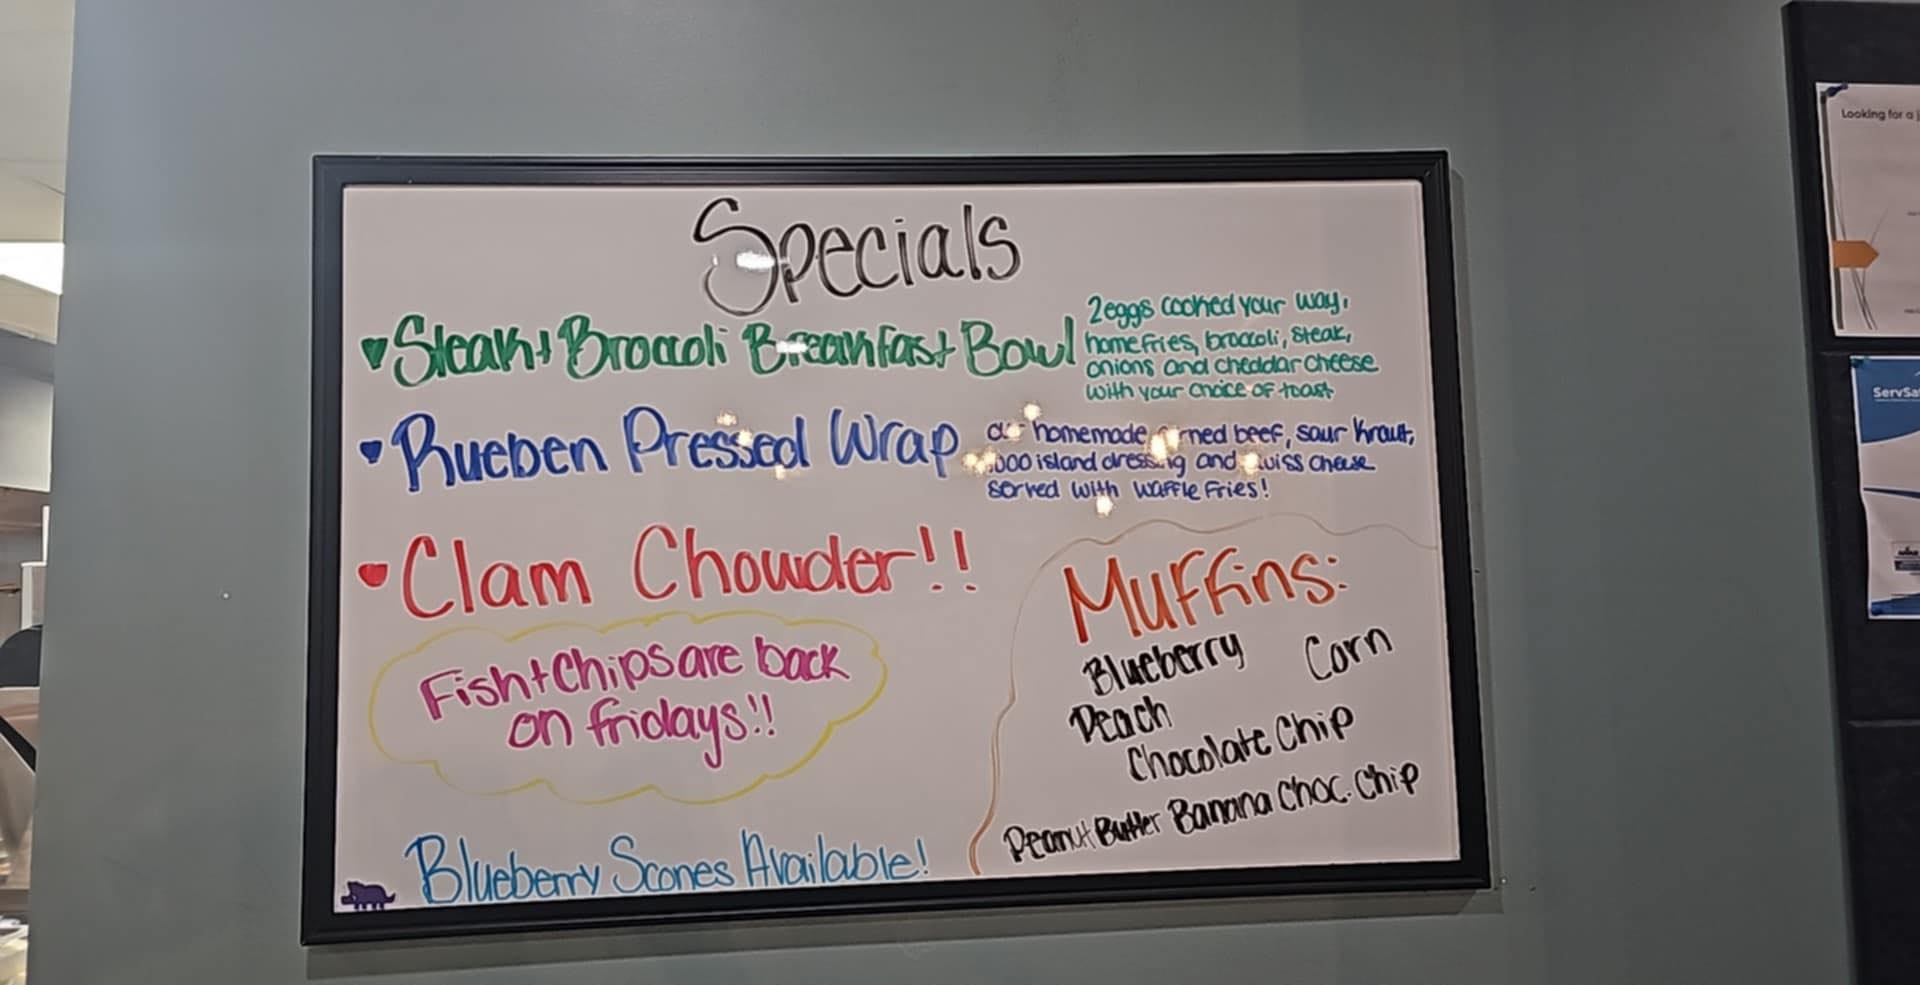 Specials
Steak + Broccoli Breakfast Bowl
2eggs cooked your way,
homefries, broccoli, steak,
onions and cheddar cheese
with your choice of toast
Rueben Pressed Wrap
our homemade corned beef, sour kraut,
1,000 island dressing and swiss cheese
served with waffle fries!
Clam Chowder!!
Fish + Chips are back
on fridays!!
Muffins:
Blueberry Corn
Peach
Chocolate Chip
Peanut Butter Banana Choc. Chip
Blueberry Scones Available!
Looking for a
ServSa